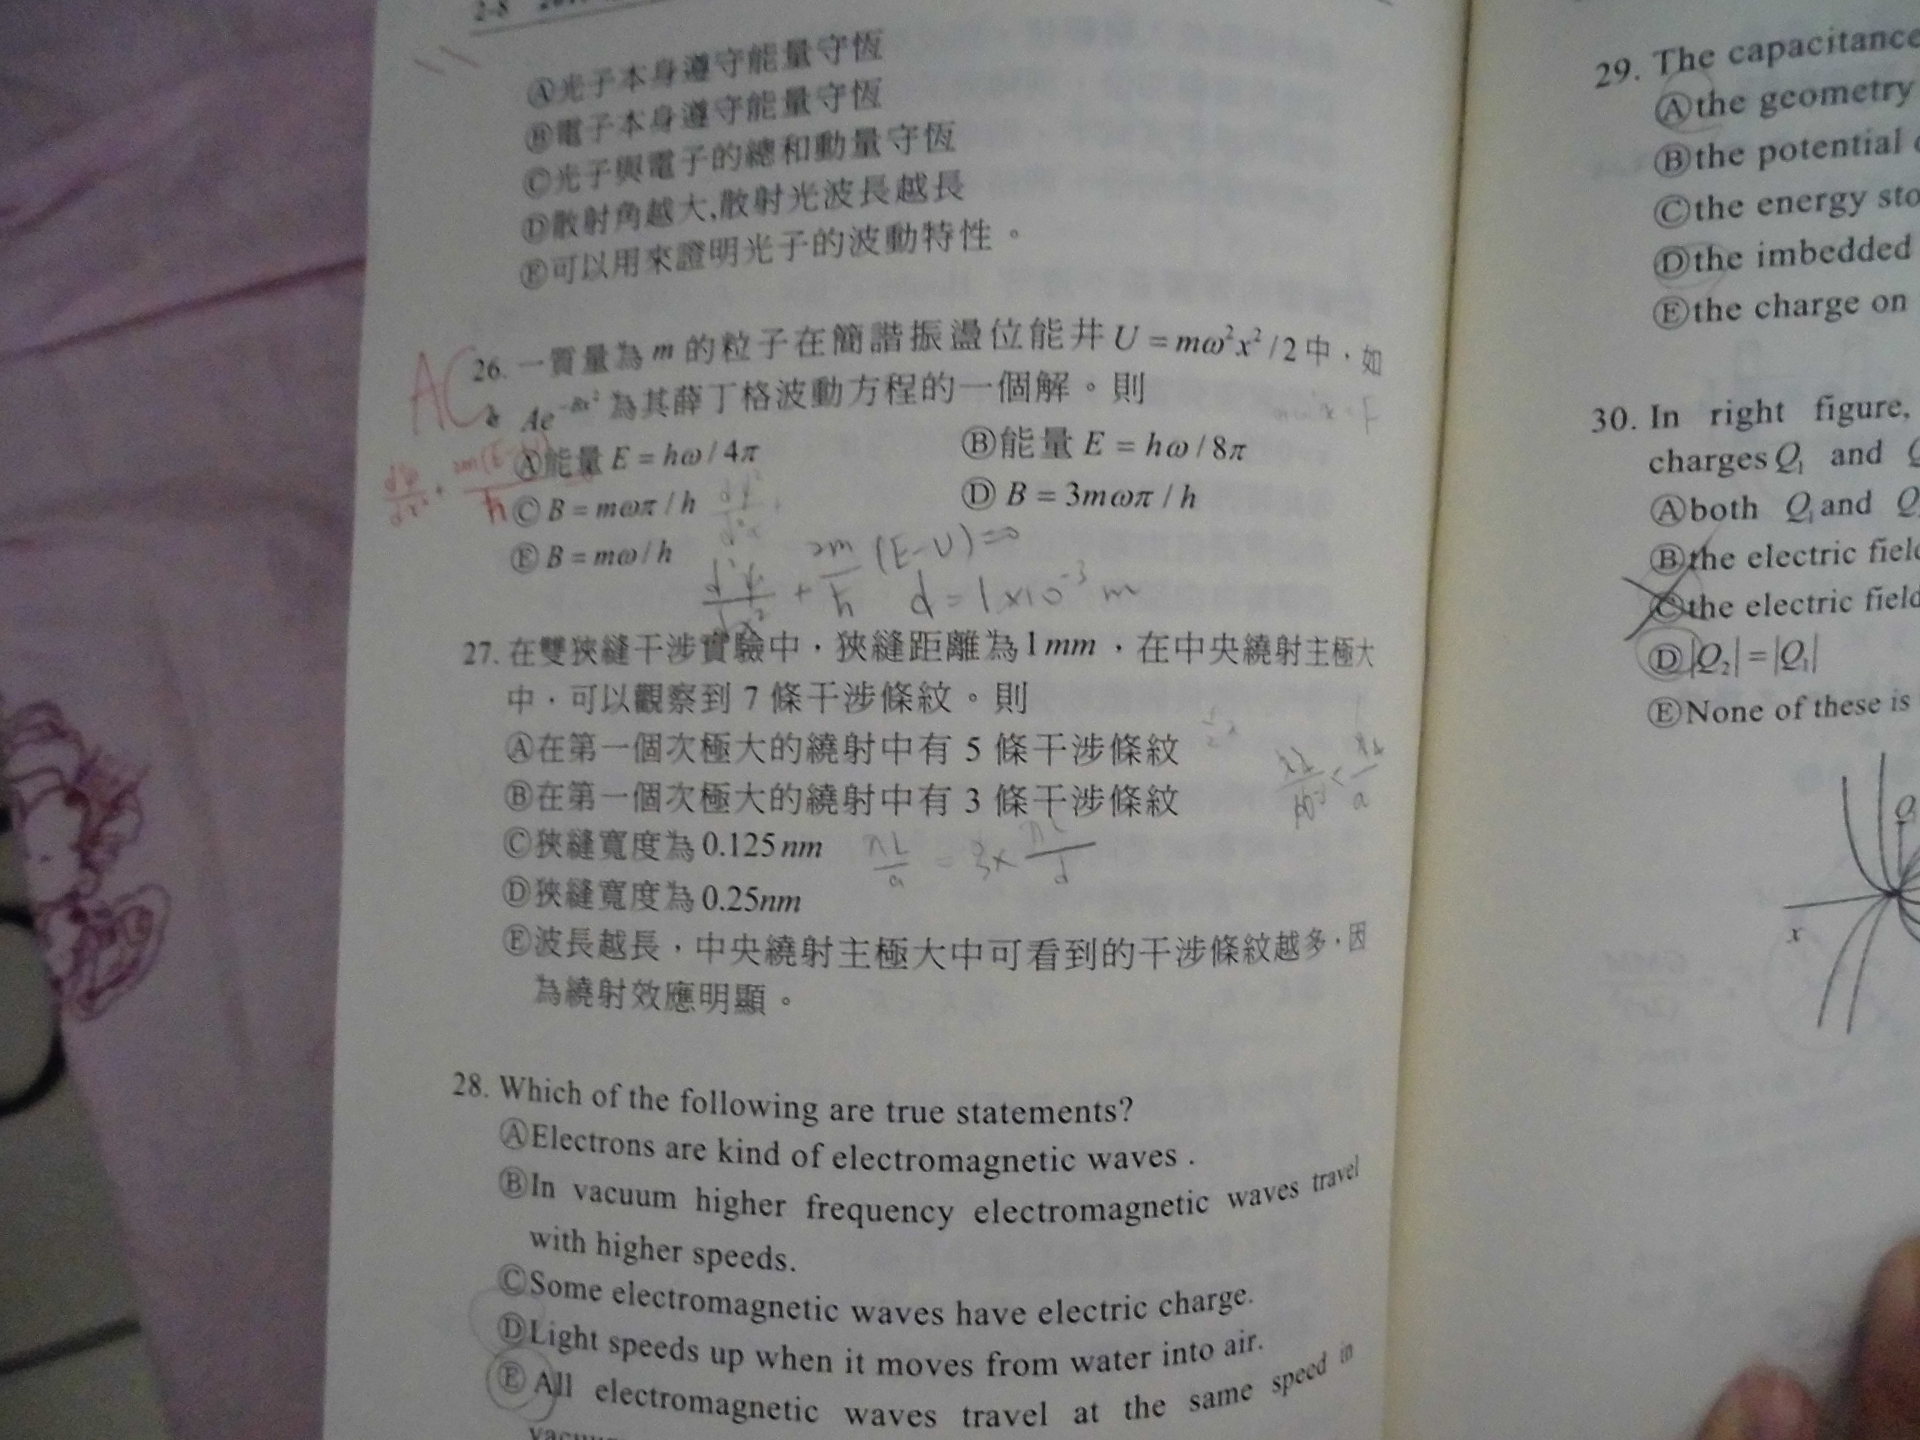 2-8
Ⓐ光子本身遵守能量守恆
Ⓑ電子本身遵守能量守恆
Ⓒ光子與電子的總和動量守恆
Ⓓ散射角越大,散射光波長越長
Ⓔ可以用來證明光子的波動特性。
AC
26. 一質量為 m 的粒子在簡諧振盪位能井 U = mω²x²/2 中，如
Ae^-Bx² 為其薛丁格波動方程的一個解。則
Ⓐ能量 E = hω/4π Ⓑ能量 E = hω/8π
Ⓒ B = mωπ/h Ⓓ B = 3mωπ/h
Ⓔ B = mω/h
2m/ħ (E-U)=0
d = 1×10⁻³ m
27. 在雙狹縫干涉實驗中，狹縫距離為 1 mm，在中央繞射主極大
中，可以觀察到 7 條干涉條紋。則
Ⓐ在第一個次極大的繞射中有 5 條干涉條紋
Ⓑ在第一個次極大的繞射中有 3 條干涉條紋
Ⓒ狹縫寬度為 0.125 nm
Ⓓ狹縫寬度為 0.25nm
Ⓔ波長越長，中央繞射主極大中可看到的干涉條紋越多，因
為繞射效應明顯。
28. Which of the following are true statements?
ⒶElectrons are kind of electromagnetic waves .
ⒷIn vacuum higher frequency electromagnetic waves travel
with higher speeds.
ⒸSome electromagnetic waves have electric charge.
ⒹLight speeds up when it moves from water into air.
Ⓔ All electromagnetic waves travel at the same speed in
29. The capacitance
Ⓐthe geometry
Ⓑthe potential
Ⓒthe energy sto
Ⓓthe imbedded
Ⓔthe charge on
30. In right figure,
charges Q₁ and
Ⓐboth Q₁ and Q
Ⓑthe electric field
Ⓒthe electric field
Ⓓ|Q₂| = |Q₁|
ⒺNone of these is
Q
x